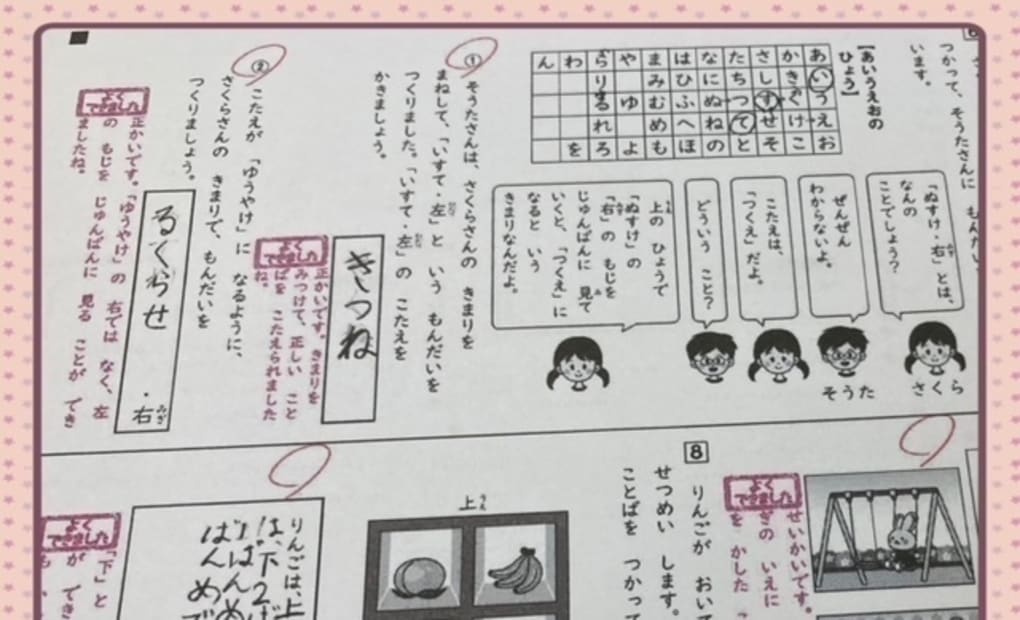 つかって、そうたさんに もんだい
います。
【あいうえおの
ひょう】
あいうえお
かきくけこ
さしすせそ
たちつてと
なにぬねの
はひふへほ
まみむめも
やゆよ
らりるれろ
わを
ん
「ぬすけ・右」とは、
なんの
ことでしょう?
さくら
ぜんぜん
わからないよ。
そうた
こたえは、
「つくえ」だよ。
どういう こと?
上の ひょうで
「ぬすけ」の
「右」の もじを
じゅんばんに 見て
いくと、「つくえ」に
なると いう
きまりなんだよ。
① そうたさんは、さくらさんの きまりを
まねして、「いすて・左」と いう もんだいを
つくりました。「いすて・左」の こたえを
かきましょう。
きつね
よく
できました
正かいです。きまりを
みつけて、正しい こと
ばを こたえられました
ね。
② こたえが 「ゆうやけ」に なるように、
さくらさんの きまりで、もんだいを
つくりましょう。
るくらせ
・右
みぎ
よく
できました
正かいです。「ゆうやけ」の 右では なく、左
の もじを じゅんばんに 見る ことが でき
ましたね。
よく
できました
せいかいです。
ぎの いえに
を かした
8
りんごが おいて
せつめい します。
ことばを つかって
上
うえ
りんごは、上
は、下2ば
ばんめ
よく
できました
「下」と
が でき